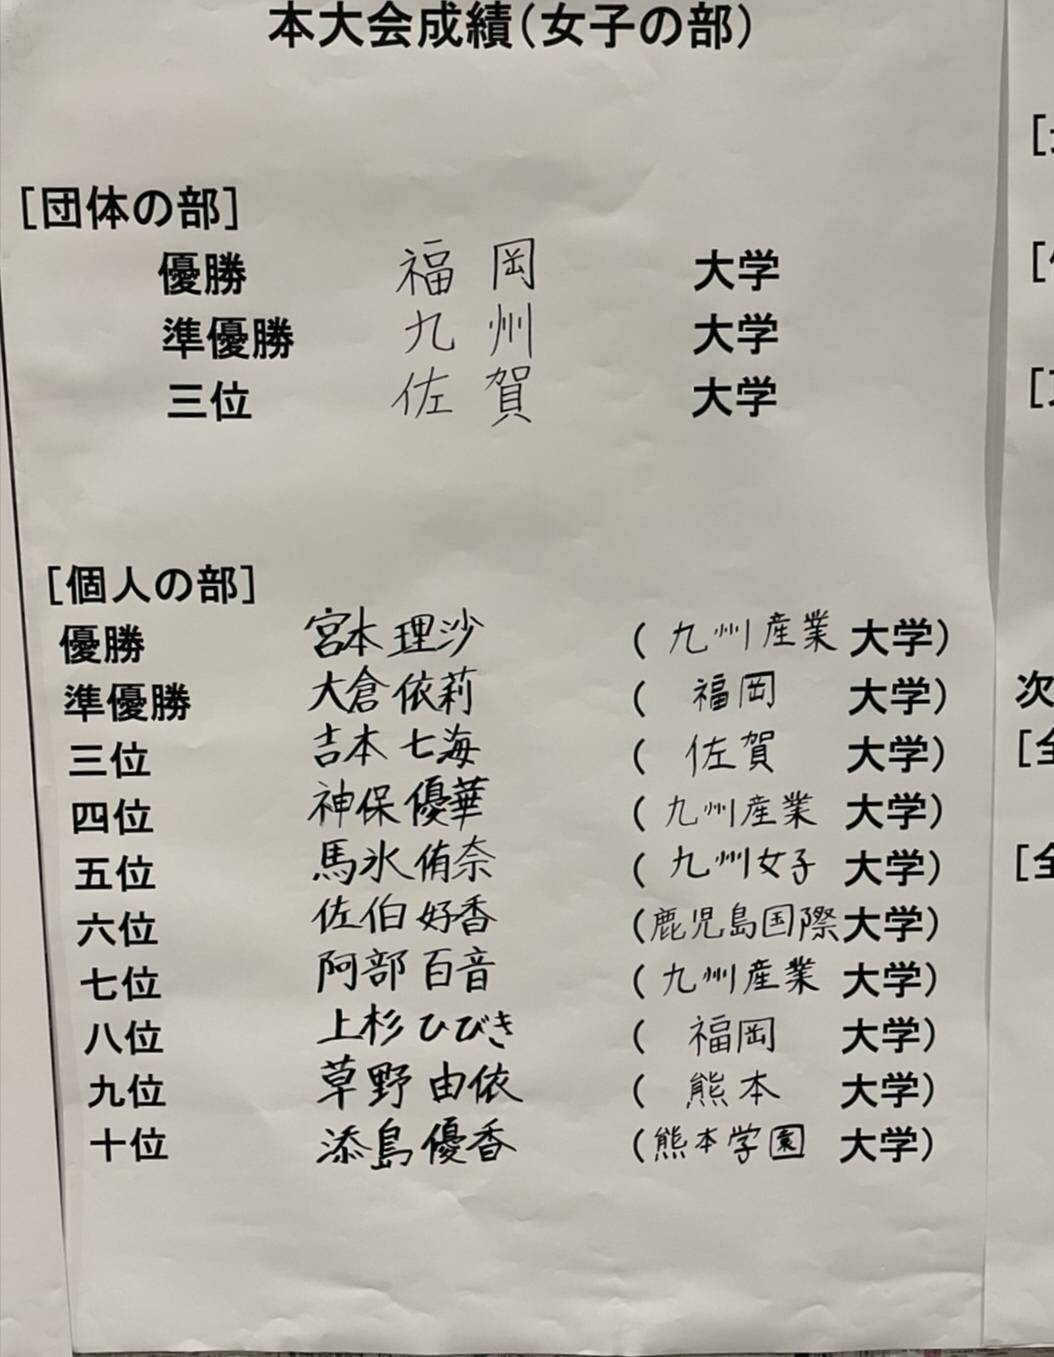 本大会成績(女子の部)
[団体の部]
優勝 福岡 大学
準優勝 九州 大学
三位 佐賀 大学
[個人の部]
優勝 宮本 理沙 (九州産業大学)
準優勝 大倉 依莉 (福岡 大学)
三位 吉本 七海 (佐賀 大学)
四位 神保 優華 (九州産業 大学)
五位 馬氷 侑奈 (九州女子 大学)
六位 佐伯 好香 (鹿児島国際大学)
七位 阿部 百音 (九州産業 大学)
八位 上杉 ひびき (福岡 大学)
九位 草野 由依 (熊本 大学)
十位 添島 優香 (熊本学園 大学)
次
[全
[全